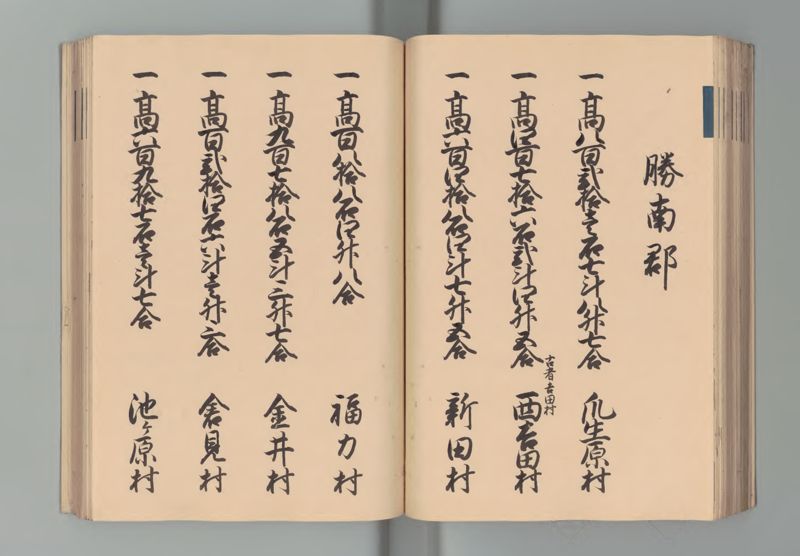 勝南郡
一高八百弐拾壱石七斗八升七合 爪生原村
一高四百七拾六石弐斗四升五合 古者吉田村 西吉田村
一高六百四拾八石四斗七升五合 新田村
一高百八拾八石四升八合 福力村
一高九百七拾八石五斗三升七合 金井村
一高百弐拾四石六斗壱升二合 舎見村
一高六百九拾七石壱斗七合 池ヶ原村